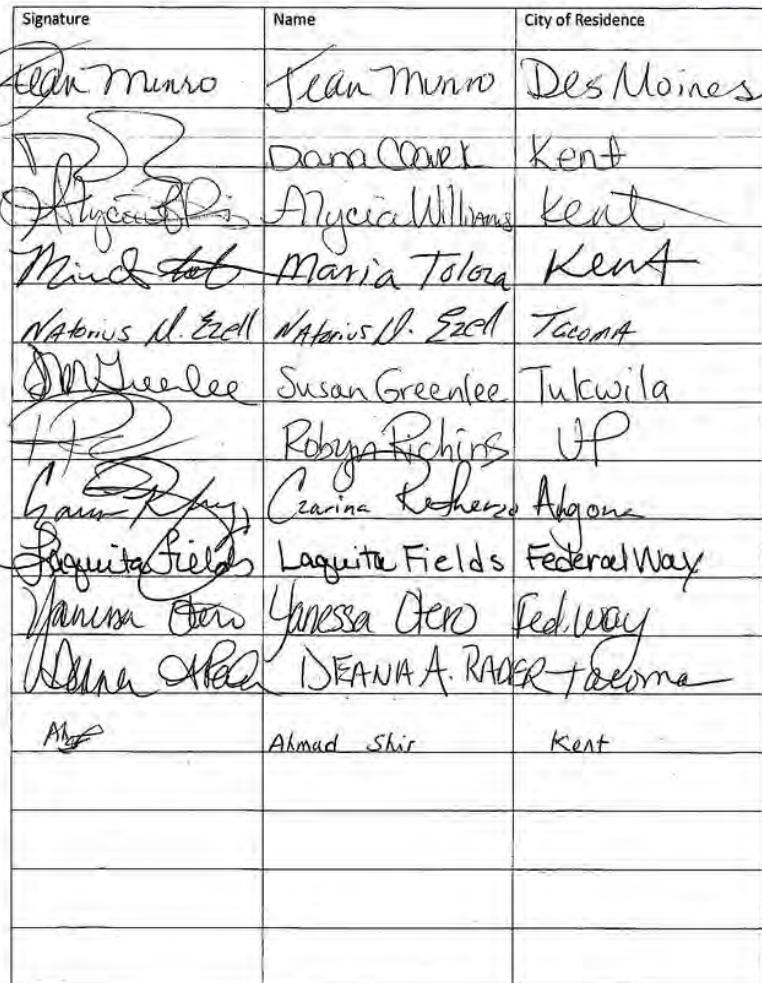 Signature Name City of Residence
Jean Munro Jean Munro Des Moines
Dana Clark Kent
Alycia Williams Kent
Maria Toloza Kent
NAtorius D. Ezell NAtorius D. Ezell TacomA
SM Greenlee Susan Greenlee Tukwila
Robyn Richins UP
Czarina Algona
Laquita Fields Laquita Fields Federal Way
Yanessa Otero Yanessa Otero Fed. Way
DEANA A. RADER Tacoma
Ahmad Shir Kent